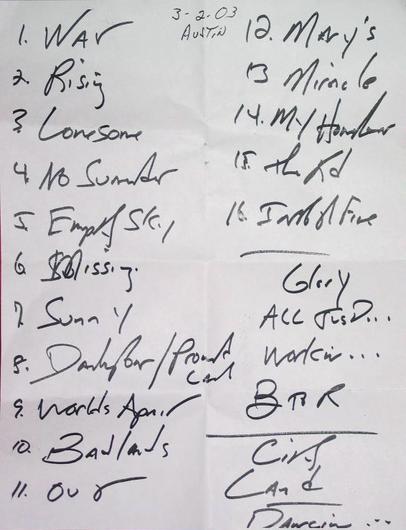 3-2-03
AUSTIN
1. WAR
2. Rising
3 Lonesome
4. NO Surrender
5. Empty Sky
6. Missing
7. Sunny
8. Darlington / Promised Land
9. Worlds Apart
10. Badlands
11. Out
12. Mary's
13 Miracle
14. My Hometown
15. the Rd
16. Land of
Glory
ALL JusD...
Workin...
BTR
City
Land
Dancin...